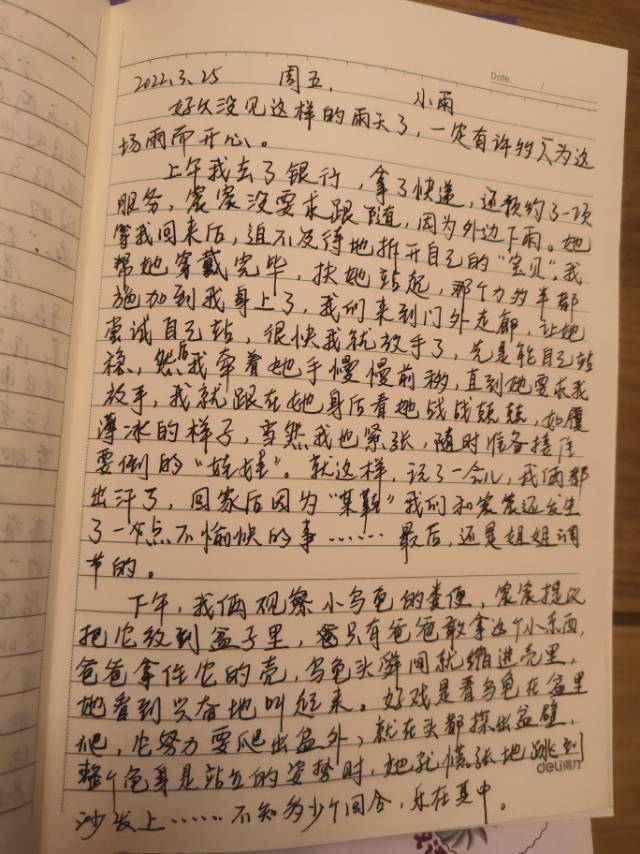 Date. /
2022.3.25 周五. 小雨
好久没见这样的雨天了，一定有许多人为这
场雨而开心。
上午我去了银行，拿了快递，还预约了一项
服务，宸宸没要求跟随，因为外边下雨。她
等我回来后，迫不及待地拆开自己的“宝贝”，我
帮她穿戴完毕，扶她站起，那个力多半都
施加到我身上了，我们来到门外走廊，让她
尝试自己站，很快我就放手了，先是能自己站
稳，然后我牵着她手慢慢前移，直到她要求我
放手，我就跟在她身后看她战战兢兢，如履
薄冰的样子，当然我也紧张，随时准备接住
要倒的“娃娃”。就这样，玩了一会儿，我俩都
出汗了，回家后因为“某鞋”我们和宸宸还发生
了一点不愉快的事……最后，还是姐姐调
节的。
下午，我俩观察小乌龟的粪便，宸宸提议
把它放到盆子里，只有爸爸敢拿这个小东西，
爸爸拿住它的壳，乌龟头瞬间就缩进壳里，
她看到兴奋地叫起来。好戏是看乌龟在盆里
爬，它努力要爬出盆外，就在头都探出盆壁，
整个龟身是站立的姿势时，她就慌张地跳到
deli得力
沙发上……不知多少个回合，乐在其中。